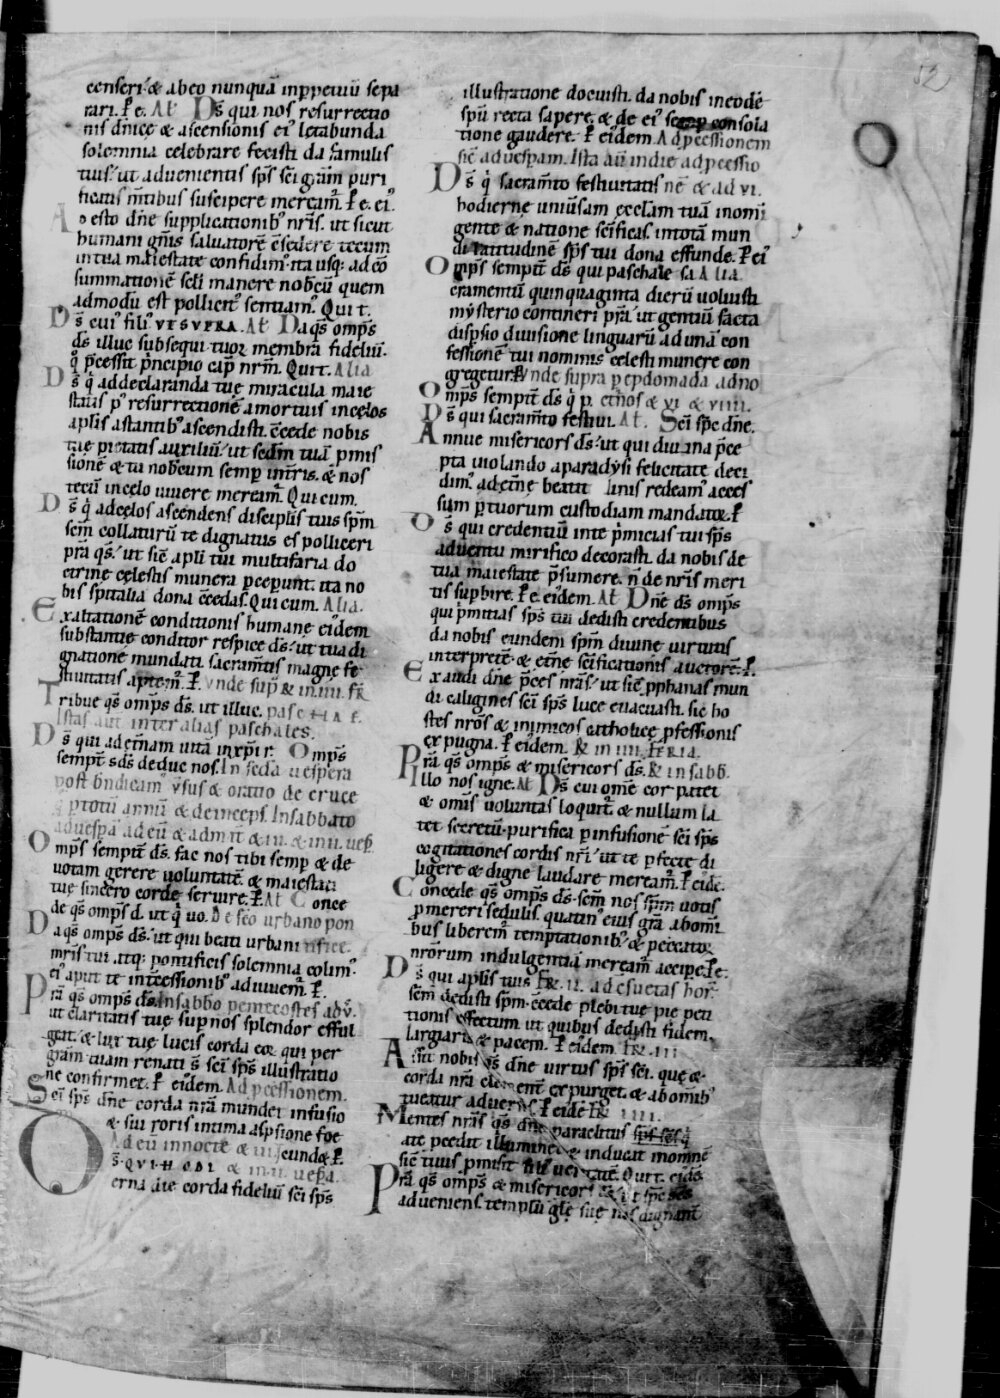 censeri. & ab eo nunquā inppetuū sepa
rari. P̄ e. Al̄ Ds̄ qui nos resurrectio
nis dn̄ice & ascensionis ei' letabunda
solemnia celebrare fecisti da famulis
tuis. ut aduenientis sp̄s sc̄i grām puri
ficatis m̄tibus suscipere meream̄. P̄ e. ei'.
A o esto dn̄e supplicationib' nr̄is. ut sicut
humani gn̄is saluatorē c̄sedere tecum
in tua maiestate confidim' ita usq; ad cō
summationē scl̄i manere nobcū quem
admodū est pollicit' sentiam'. Qui t.
Ds̄ cui' fili' VESPERA. Al̄ Da qs̄ omp̄s
ds̄ illuc subsequi tuoꝝ membra fideliū.
q̊ p̄cessit p̄ncipio cap̄ nr̄m. Qui t. Alia
Ds̄ q̄ ad declaranda tuę miracula maie
statis p' resurrectionē a mortuis in celos
aplis astantib' ascendisti. c̄cede nobis
tuę pietatis auxiliū ut scdm̄ tuā pmis
sionē & tu nobcum semp in tr̄is. & nos
tecū in celo uiuere meream̄. Qui cum.
Ds̄ q̄ ad cęlos ascendens disciplis tuis sp̄m
sc̄m collaturū te dignatus es polliceri
pr̄a qs̄. ut sic̄ apli tui multifaria do
ctrine cęlestis munera pceperunt. ita no
bis sp̄italia dona c̄cedas. Qui cum. Alia.
Exaltationē conditionis humane eidem
substantię conditor respice ds̄. ut tua di
gnatione mundati. sacram̄tis magnę fe
stiuitatis aptem̄. P̄. Vnde sup̄ & in IIII. fr̄
Tribue qs̄ omp̄s ds̄. ut illuc. PASCHA F.
Istas aut inter alias paschales.
Ds̄ qui ad etn̄am uitā in xp̄i r. Omp̄s
sempt̄ sds̄ deduc nos. In scd̄a uespera
post bn̄dicam' v̄sus & oratio de cruce
p totū annū & deinceps. In sabbato
ad uesp̄ā ad eū & ad m̄t & in II. & in IIII. uesp̄
Omp̄s sempit̄ ds̄. fac nos tibi semp & de
uotam gerere uoluntatē. & maiestati
tuę sincero corde seruire. P̄. Al̄ Conce
de qs̄ omp̄s d. ut q̄ uo. De sc̄o urbano pon
Da qs̄ omp̄s ds̄. ut qui beati urbani
mr̄is tui atq; pontificis solemnia colim'.
ei' aput te int̄cessionib' adiuuem̄. P̄.
Pr̄a qs̄ omp̄s ds̄. In sabbo pentecostes
ut claritatis tuę sup nos splendor efful
geat. & lux tuę lucis corda eoꝝ qui per
grām tuam renati s̄ sc̄i sp̄s illustratio
ne confirmet. P̄ eidem. Ad p̄cessionem.
Sc̄i sp̄s dn̄e corda nr̄a mundet infusio
& sui roris intima aspsione foe
Ad eū in nocte & cundet P̄.
Ds̄ QVI HODI & in II. uesp̄a.
erna die corda fideliū sc̄i sp̄s
illustratione docuisti. da nobis in eodē
sp̄u recta sapere. & de ei' semp consola
tione gaudere. P̄ eidem. Ad p̄cessionem
sic̄ ad uesp̄am. Ista aū in die ad p̄cessio
Ds̄ q̄ sacram̄to festiuitatis nē & ad VI.
hodiernę uniūsam ęcclam tuā in omī
gente & natione sc̄ificas in totā mun
di latitudinē sp̄s tui dona effunde. P̄ ei'
Omp̄s sempit̄ ds̄ qui paschale sa Alia.
cramentū quinquaginta dierū uoluisti
mysterio contineri pr̄a. ut gentiū facta
disp̄sio diuisione linguarū ad unā con
fessionē tui nominis cęlesti munere con
gregetur. P̄. Vnde supra p epdomada ad no
Omp̄s sempit̄ ds̄ q̄ p. & VI & VIIII.
Ds̄ qui sacram̄to festiui. Al̄. Sc̄i sp̄c dn̄e.
Annue misericors ds̄. ut qui diuina p̄ce
pta uiolando a paradysi felicitate deci
dim'. ad etn̄ę beatit linis redeam' acces
sum p tuorum custodiam mandatoꝝ. P̄
Ds̄ qui credentiū in te p̄micias tui sp̄s
aduentu mirifico decorasti. da nobis de
tua maiestate p̄sumere. n̄ de nr̄is meri
tis supbire. P̄ e. eidem. Al̄ Dn̄e ds̄ omp̄s
qui p̄mitias sp̄s tui dedisti credentibus
da nobis eundem sp̄m diuine uirtutis
interpretē. & etn̄e sc̄ificationis auctorē. P̄.
Exaudi dn̄e p̄ces nr̄as. ut sic̄ pphanas mun
di caligines sc̄i sp̄s luce euacuasti. sic ho
stes nr̄os & inimicos catholicę pfessionis
expugna. P̄ eidem. & in IIII. FERIA.
Pr̄a qs̄ omp̄s & misericors ds̄. & in sabb̄.
Illo nos igne. Al̄ Ds̄ cui om̄e cor patet
& omīs uoluntas loquit̄. & nullum la
tet secretū. purifica p infusionē sc̄i sp̄s
cogitationes cordis nr̄i. ut te pfecte di
ligere & digne laudare meream̄. P̄ eidē.
Concede qs̄ omp̄s ds̄. sc̄m nos sp̄m uotis
pmereri sedulis. quatin' eius gr̄a ab omī
bus liberem̄ temptationib'. & peccatoꝝ
nr̄orum indulgentiā meream̄ accipe. P̄ e.
Ds̄ qui aplis tuis FR̄. II. ad c̄suetas hor̄.
sc̄m dedisti sp̄m. c̄cede plebi tuę pie peti
tionis effectum. ut quibus dedisti fidem.
largiaris & pacem. P̄ eidem. FR̄. III
Assit nobis qs̄ dn̄e uirtus sp̄s sc̄i. quę &
corda nr̄a clementē expurget. & ab omib'
tueatur aduersis. P̄ eidē FR̄ IIII.
Mentes nr̄as qs̄ dn̄e paraclitus sp̄s
a te pcedit illuminet & inducat in omnē
sic̄ tuus pmisit filius ueritatē. Qui t. eidē
Pr̄a qs̄ omp̄s & misericors ds̄. ut sp̄c sc̄s
adueniens. templū glę suę nos dignant̄